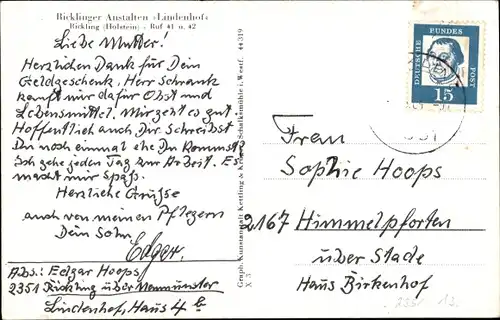 Ricklinger Anstalten »Lindenhof«
Rickling (Holstein) - Ruf 41 u. 42
Liebe Mutter!
Herzlichen Dank für Dein
Geldgeschenk. Herr Schrank
kauft mir dafür Obst und
Lebensmittel. Mir geht es gut.
Hoffentlich auch Dir. Schreibst
Du noch einmal ehe Du kommst.
Ich gehe jeden Tag zur Arbeit. Es
macht mir Spaß.
Herzliche Grüße
auch von meinen Pflegern
Dein Sohn
Edgar.
Abs.: Edgar Hoops
2351 Rickling über Neumünster
Lindenhof, Haus 4 b
Graph. Kunstanstalt Kettling & Krüger, Schalksmühle i. Westf. 44319
X 3
DEUTSCHE BUNDESPOST
15
Frau
Sophie Hoops
2167 Himmelpforten
über Stade
Haus Birkenhof